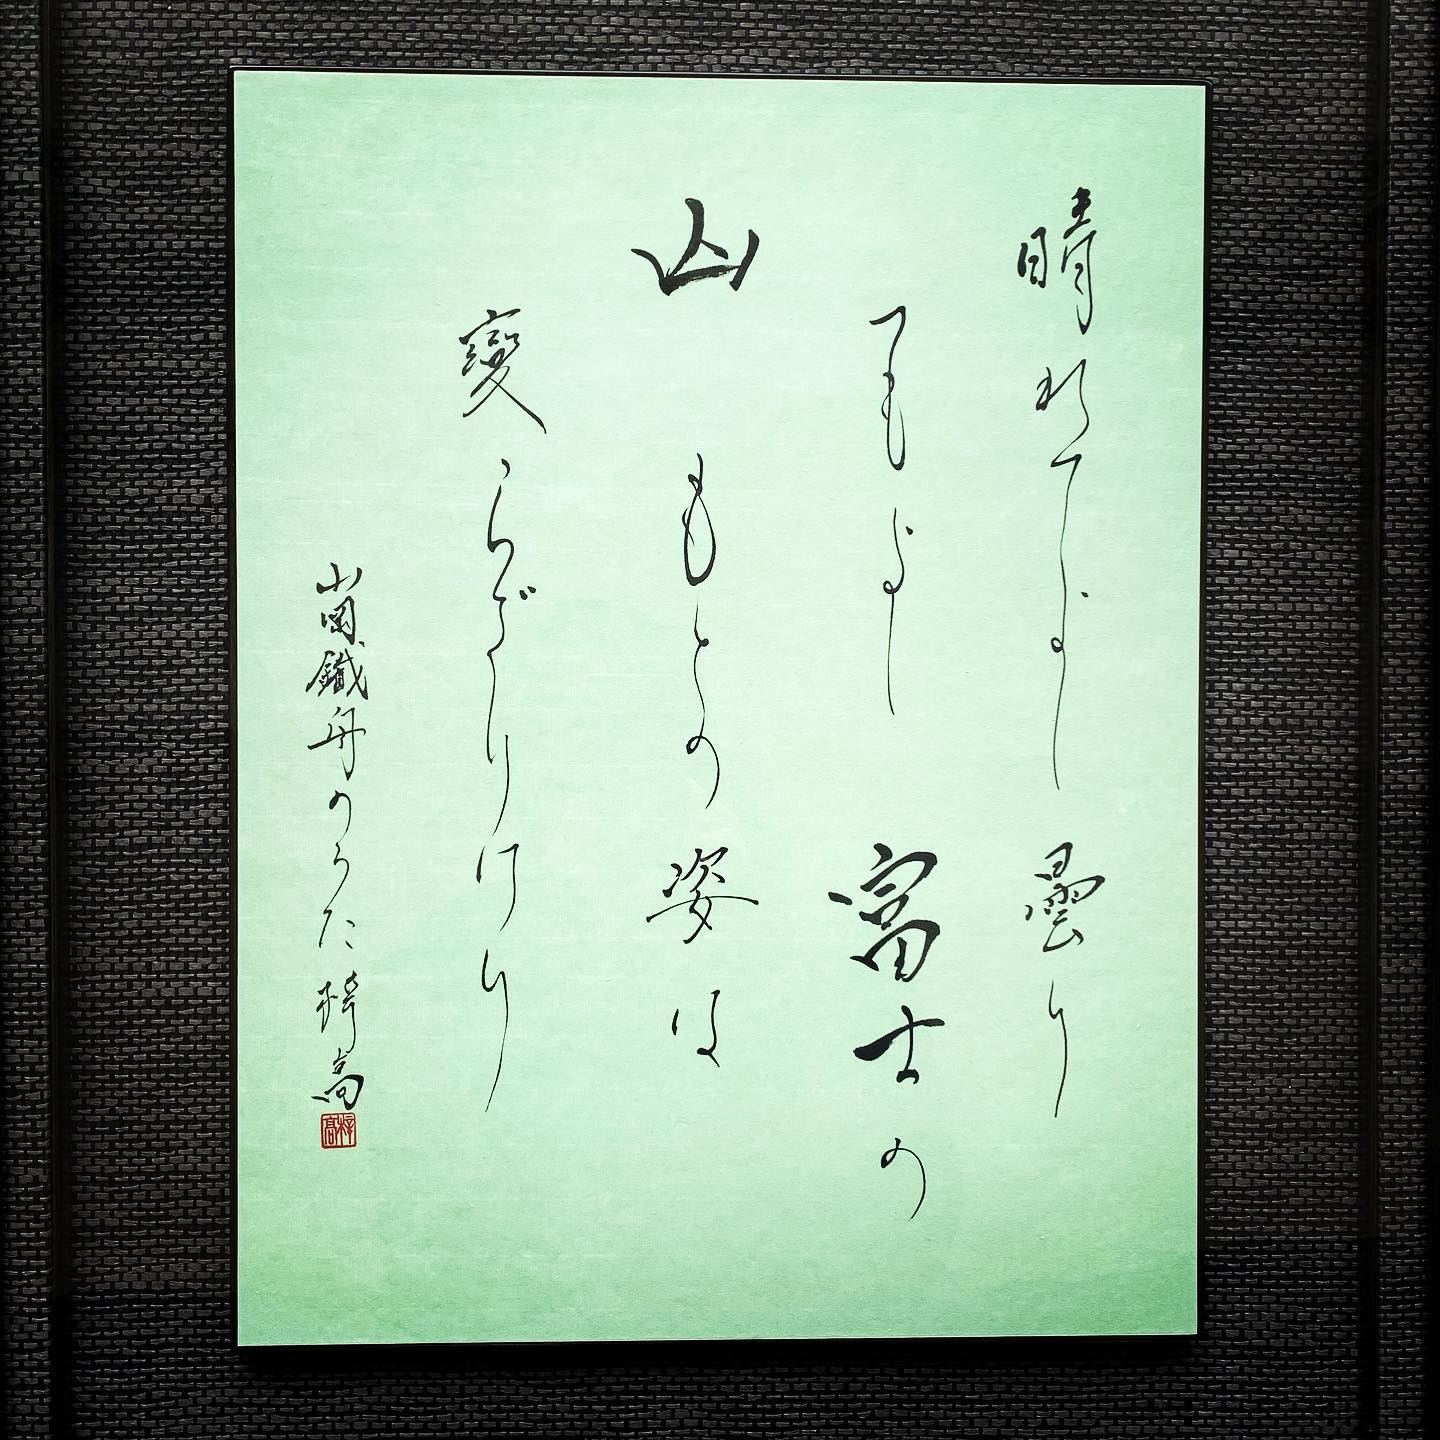 晴れてよし曇り
てもよし富士の
山もとの姿は
変らざりけり
山岡鐵舟のうた梓高
梓高